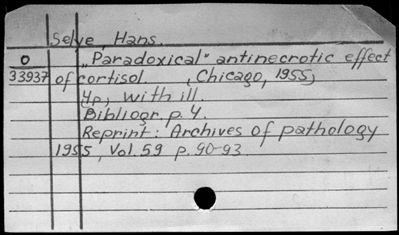 Selye, Hans.
O „Paradoxical" antinecrotic effect
33937 of cortisol , Chicago, 1955,
4p, with ill.
Bibliogr. p. 4.
Reprint: Archives of pathology
1955, Vol. 59 p. 90-93